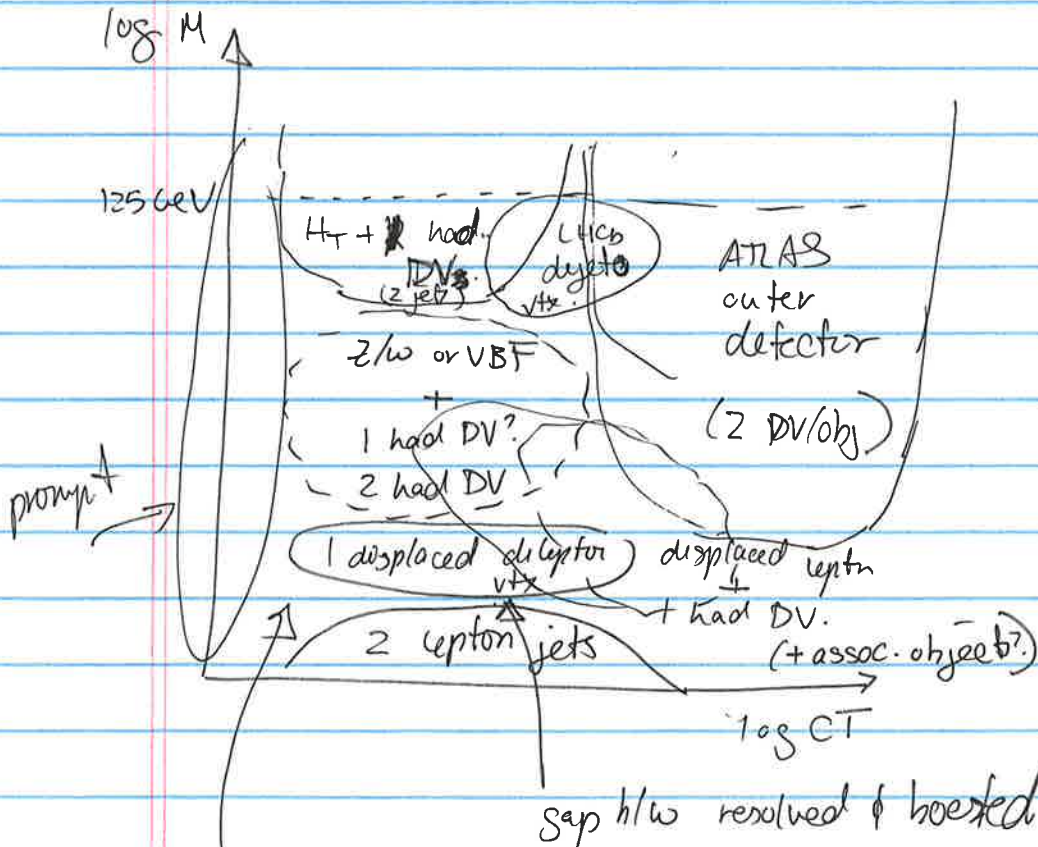 log M
125 GeV
HT + had. DVs.
(2 jets)
LHCb
dijet
vtx.
ATLAS
outer
detector
(2 DV/obj)
Z/W or VBF
+
1 had DV?
2 had DV
prompt
1 displaced dilepton
vtx
displaced lepton
+
+ had DV.
(+ assoc. object?)
2 lepton jets
log cτ
gap b/w resolved & boosted